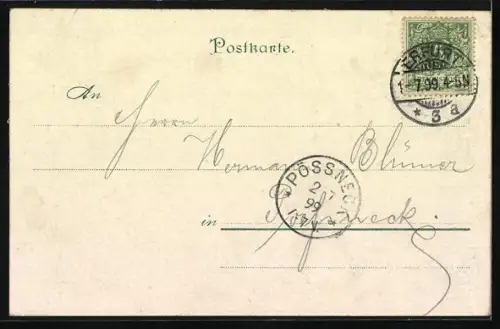 Postkarte.
ERFURT
1-7.99.4-5N
* 3 a
An
Herrn
Hermann Blümer
PÖSSNECK
2 7
99
in Pößneck.